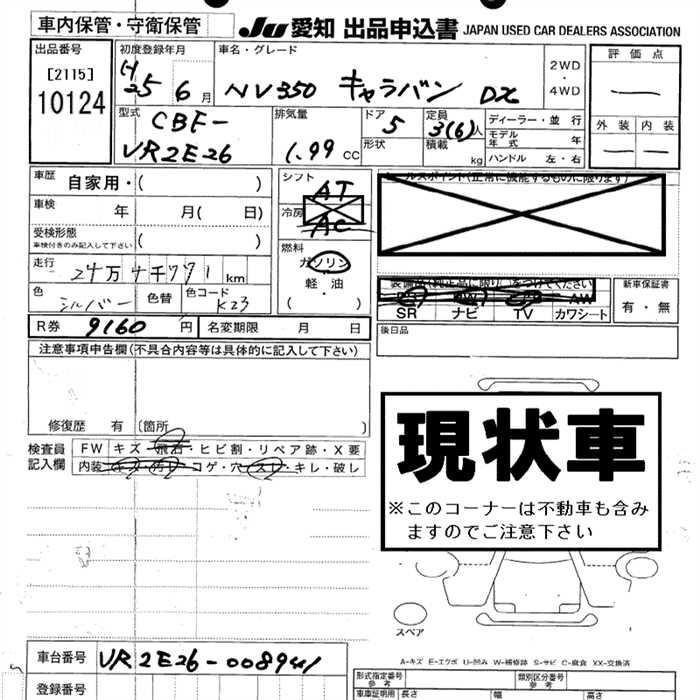 車内保管・守衛保管
JU 愛知 出品申込書 JAPAN USED CAR DEALERS ASSOCIATION
出品番号
[2115]
10124
初度登録年月
H25 6月
車名・グレード
NV350 キャラバン DX
2WD・4WD
評価点
外装 内装
型式
CBF-
VR2E26
排気量
1.99 CC
ドア
5
形状
定員
3(6)人
積載 kg
ディーラー・並行
モデル年式 年
ハンドル 左・右
車歴 自家用・( )
車検 年 月( 日)
受検形態
車検付きのみ記入して下さい ( )
走行
24万 千771 km
色 シルバー 色替 色コード K23
シフト AT
冷房 AC
燃料
ガソリン
軽油
( )
セールスポイント(正常に機能するものに限ります)
装備品(純正品に限り)○をつけてください
AW
SR ナビ TV カワシート
新車保証書
有・無
R券 9160 円 名変期限 月 日
後日品
注意事項申告欄(不具合内容等は具体的に記入して下さい)
修復歴 有(箇所 )
検査員記入欄
FW キズ・飛石・ヒビ割・リペア跡・X要
内装 キズ・汚れ・コゲ・穴・スレ・キレ・破レ
現状車
※このコーナーは不動車も含み
ますのでご注意下さい
スペア
A-キズ E-エクボ U-凹み W-補修跡 S-サビ C-腐食 XX-交換済
車台番号 VR2E26-008941
登録番号
形式指定番号
参考
類別区分番号
参考
車庫証明用 長さ 幅 高さ